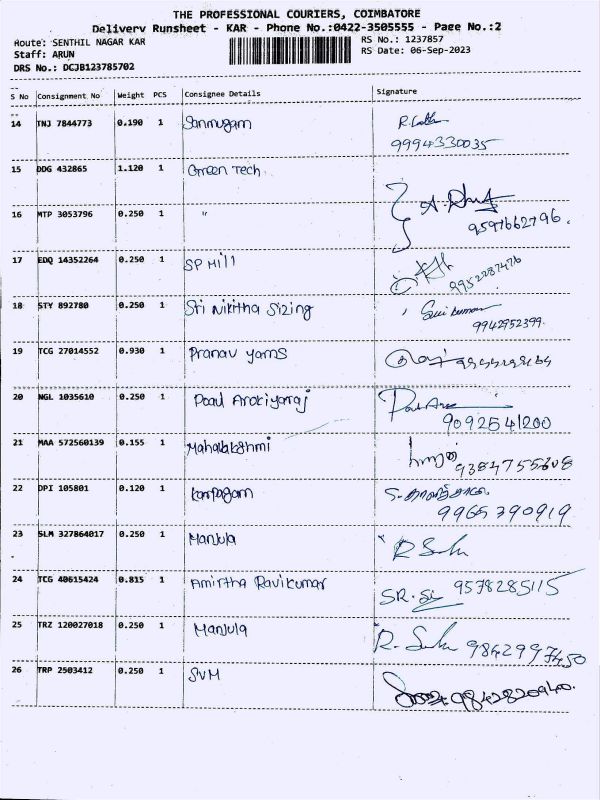 THE PROFESSIONAL COURIERS, COIMBATORE
Delivery Runsheet - KAR - Phone No.:0422-3505555 - Page No.:2
Route: SENTHIL NAGAR KAR RS No.: 1237857
Staff: ARUN RS Date: 06-Sep-2023
DRS No.: DCJB123785702
S No Consignment No Weight PCS Consignee Details Signature
14 TNJ 7844773 0.190 1 Sanmugam
9994330035
15 DDG 432865 1.120 1 Green Tech
16 MTP 3053796 0.250 1 "
9597662796.
17 EDQ 14352264 0.250 1 SP Mill
9952287476
18 STY 892780 0.250 1 Sri Nikitha Sizing
9942952399
19 TCG 27014552 0.930 1 Pranav yarns
20 NGL 1035610 0.250 1 Paul Arokiyaraj
9092541200
21 MAA 572560139 0.155 1 Mahalakshmi
22 DPI 105801 0.120 1 Karpagam
9965390919
23 SLM 327864017 0.250 1 Manjula
24 TCG 40615424 0.815 1 Amirtha Ravikumar
9578285115
25 TRZ 120027018 0.250 1 Manjula
9842997450
26 TRP 2503412 0.250 1 SVM
9842820940.